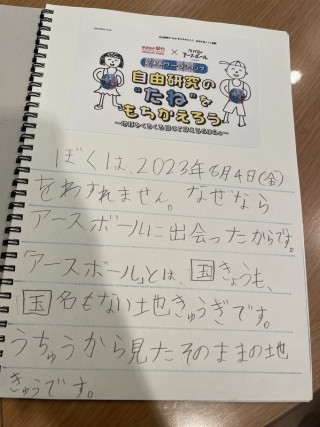 ×
アースボール
自由研究の
"たね"を
もちかえろう
ぼくは、2023年8月4日(金)
をわすれません。なぜなら
アースボールに出会ったからです。
「アースボール」とは、国きょうも、
国名もない地きゅうぎです。
うちゅうから見たそのままの地
きゅうです。